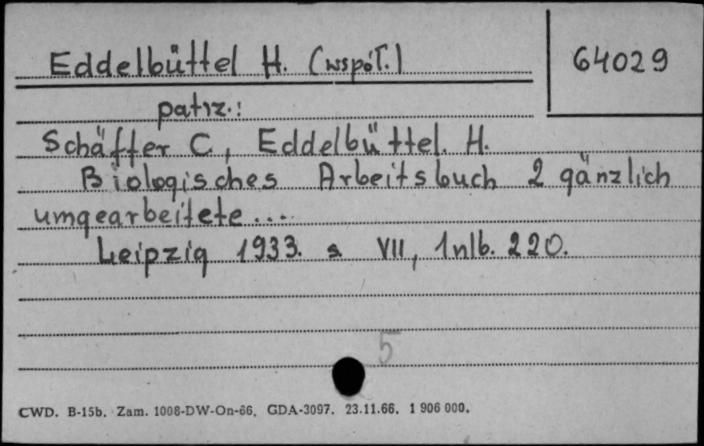 Eddelbüttel H. (współ.)
64029
patrz.:
Schäffer C, Eddelbüttel. H.
Biologisches Arbeitsbuch 2 gänzlich
umgearbeitete...
Leipzig 1933. s VII, 1nlb. 220.
5
CWD. B-15b. Zam. 1008-DW-On-66. GDA-3097. 23.11.66. 1 906 000.